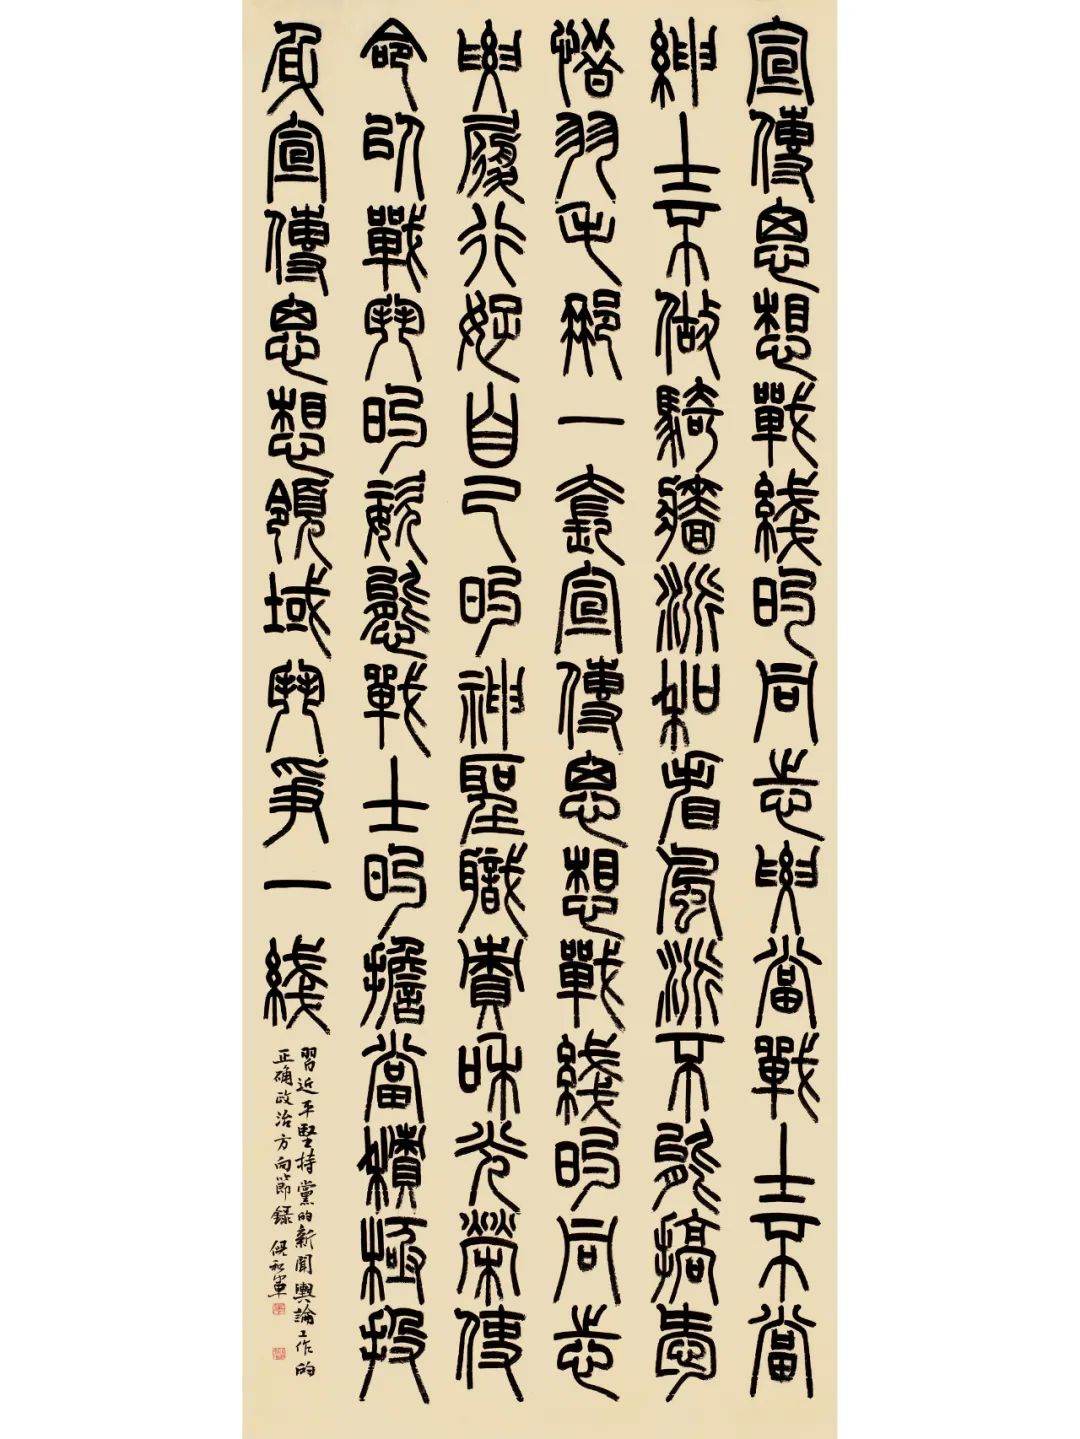 宣傳思想戰綫的同志要當戰士不當
紳士不做騎牆派和看風派不能搞愛
惜羽毛那一套宣傳思想戰綫的同志
要履行好自己的神聖職責和光榮使
命以戰鬥的姿態戰士的擔當積極投
身宣傳思想領域鬥爭一綫
習近平堅持黨的新聞輿論工作的
正确政治方向節録